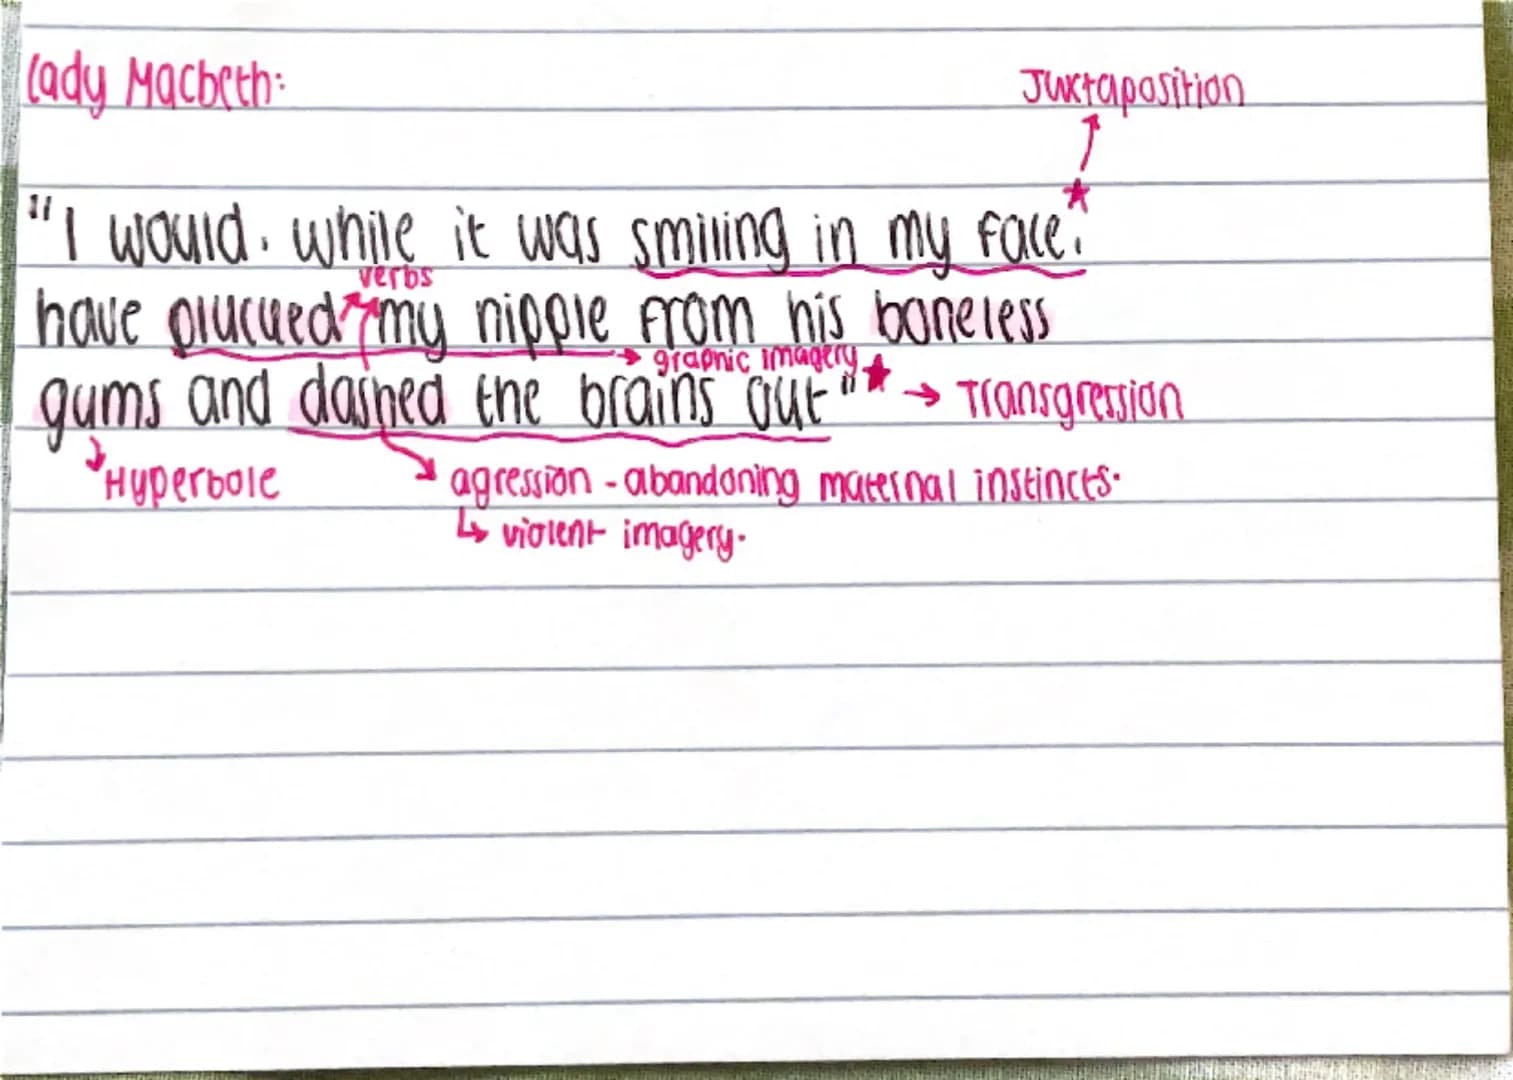 Lady Macbeth:
Juxtaposition
"I would. while it was smiling in my face.
verbs
have plucued my nipple from his boneless
graphic imagery
gums and dashed the brains out" → Transgression
Hyperbole
agression - abandoning maternal instincts.
↳ violent imagery.